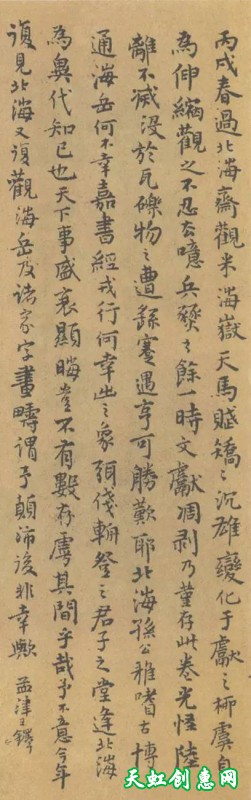 丙戌春過北海齋觀米海嶽天馬賦矯〻沉雄變化于獻之柳虞自
為伸縮觀之不忍去噫兵燹之餘一時文獻凋剥乃董存此卷光怪陸
離不滅沒於瓦礫物之遭繇蹇遇亨可勝歎耶北海孫公雅嗜古博
通海岳何不幸嘉書經戎行何幸出之象弭伐輈登之君子之堂逢北海
為異代知己也天下事盛衰顯晦豈不有數存虖其間乎哉予不意今年
復見北海又復觀海岳及諸家字畫疇謂予顛沛後非幸歟 孟津王鐸
天虹创意网